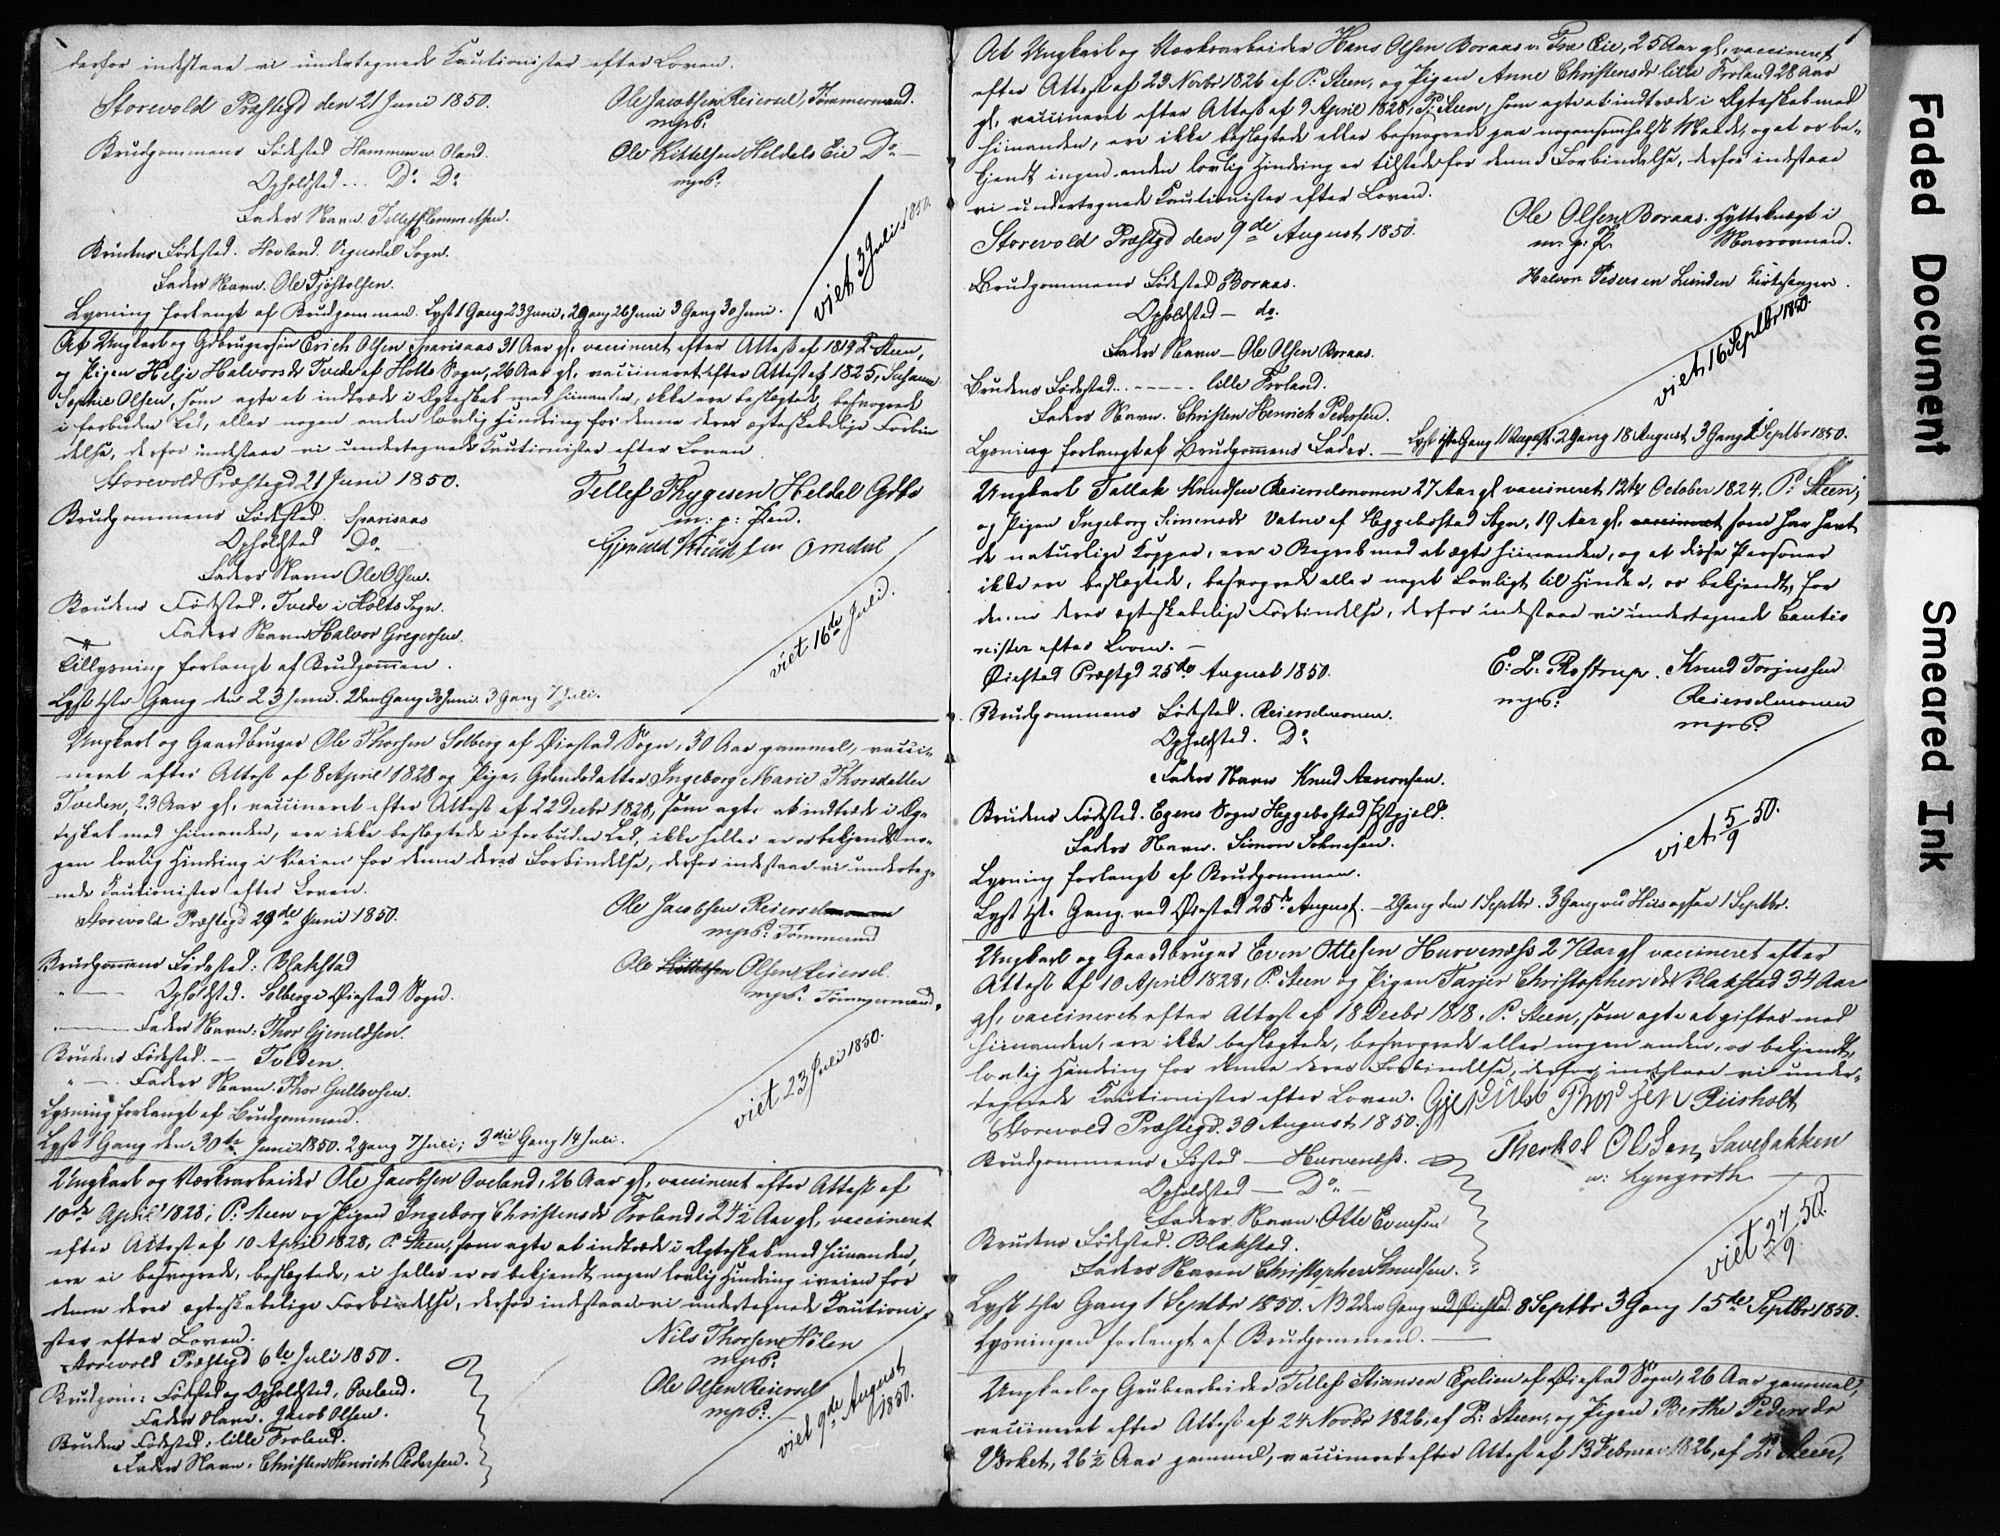 derfor indestaae vi undertegnede Cautionister efter Loven.
Storevold Præstegd den 21 Juni 1850.
Ole Jacobsen Reiersel, Tømmermand.
mpS:
Brudgommens Fødested Hammen u: Oland.
Ole Kittelsen Heldals Eie Do
mpS:
Opholdsted ... Do Do
Faders Navn. Tellef Clemmetsen.
Brudens Fødested. Hovland. Vegusdal Sogn.
Faders Navn. Ole Tjøstolsen.
viet 3 Juli 1850.
Lysning forlangt af Brudgommen. Lyst 1 Gang 23 Juni, 2 Gang 26 Juni 3 Gang 30 Juni.
At Ungkarl og Gdbrugersøn Erich Olsen Sparisaas 31 Aar gl. vaccineret efter Attest af 1819 P. Steen,
og Pigen Helje Halvorsdr Tvede af Holts Sogn, 26 Aar gl, vaccineret efter Attest af 1825, Susanne
Sophie Olsen, som agte at indtræde i Ægteskab med hinanden, ikke ere beslægtede, besvogrede
i forbuden Led, eller nogen anden lovlig Hindring for denne deres ægteskabelige Forbin
delse, derfor indestaae vi undertegnede Cautionister efter Loven
Storevold Præstegd 21 Juni 1850.
Tellef Thygesen Heldal Gdbr
m: p: Pen.
Brudgommens Fødested. Sparisaas
Gjeruld Knudsen Omdal
Opholdsted Do
Faders Navn Ole Olsen.
Brudens Fødested. Tvede i Holts Sogn.
Faders Navn Halvor Gregersen.
viet 16de Juli.
Tillysning forlangt af Brudgommen.
Lyst 1ste Gang den 23 Juni. 2den Gang 30 Juni. 3 Gang 7 Juli.
Ungkarl og Gaardbruger Ole Thorsen Solberg af Øiestad Sogn, 30 Aar gammel, vacci-
neret efter Attest af 8 April 1828 og Pige, Gdmdsdatter Ingeborg Marie Thorsdatter
Tveden, 23 Aar gl. vaccineret efter Attest af 22 Decbr 1828, som agte at indtræde i Æg-
teskab med hinanden, ere ikke beslægtede i forbuden Led, ikke heller er os bekjendt no-
gen lovlig Hindring i Veien for denne deres Forbindelse, derfor indestaae vi underteg-
nede Cautionister efter Loven.
Storevold Præstegd 29de Juni 1850.
Ole Jacobsen Reiersel
mpS: Tømmermd
Brudgommens Fødested: Blakstad
Ole Kittelsen Olsen Reiersel.
mpS: Tømmermand.
Opholdsted. Solberg i Øiestad Sogn.
Faders Navn: Thor Gjeruldsen.
Brudens Fødested. — Tveden.
Faders Navn: Thor Gullovsen.
viet 23 Juli 1850.
Lysning forlangt af Brudgommen.
Lyst 1 Gang den 30te Juni 1850. 2 Gang 7 Juli; 3die Gang 14 Juli.
Ungkarl og Værksarbeider Ole Jacobsen Oveland, 26 Aar gl, vaccineret efter Attest af
10de April 1828, P: Steen og Pigen Ingeborg Christensdr Froland, 24½ Aar gl, vaccineret
efter Attest af 10 April 1828, P. Steen, som agte at indtræde i Ægteskab med hinanden,
ere ei besvogrede, beslægtede, ei heller er os bekjendt nogen lovlig Hindring i Veien for
denne deres ægteskabelige Forbindelse, derfor indestaae vi undertegnede Cautioni-
ster efter Loven.
Nils Thorsen Hølen
mpS:
Storevold Præstegd 6te Juli 1850.
Ole Olsen Reiersel
mpS:
Brudgom: Fødested og Opholdsted, Oveland.
Faders Navn. Jacob Olsen.
Brudens Fødested, lille Froland.
Faders Navn. Christen Henrich Pedersen.
viet 9de August 1850.
At Ungkarl og Værksarbeider Hans Olsen Boraas v. Eie, 25 Aar gl, vaccineret
efter Attest af 23 Novbr 1826 af P: Steen, og Pigen Anne Christensdr lille Froland 28 Aar
gl, vaccineret efter Attest af 9 April 1828, P: Steen, som agte at indtræde i Ægteskab med
hinanden, ere ikke beslægtede eller besvogrede paa nogensomhelst Maade, og at os be-
kjendt ingen anden lovlig Hindring er tilstede for denne Forbindelse, derfor indestaae
vi undertegnede Cautionister efter Loven.
Storevold Præstegd den 9de August 1850.
Ole Olsen Boraas. Hytteknægt i
m. p. P. Marvoren.
Brudgommens Fødested Boraas.
Halvor Pedersen Lunden Kirkesanger.
Opholdsted — do.
Faders Navn — Ole Olsen Boraas.
Brudens Fødested. lille Froland.
Faders Navn. Christen Henrich Pedersen.
viet 16 Septbr 1850
Lysning forlangt af Brudgommens Fader. — Lyst 1ste Gang 11 August, 2 Gang 18 August, 3 Gang 1 Septbr 1850.
Ungkarl Tallak Knudsen Reierselmoen 27 Aar gl vaccineret 12te October 1824. P: Steen,
og Pigen Ingeborg Simonsdr Vatne af Heggebostad Sogn, 19 Aar gl. vaccineret som har havt
de naturlige Kopper, ere i Begreb med at ægte hinanden, og at disse Personer
ikke ere beslægtede, besvogrede eller noget Lovligt til Hinder, os bekjendt, for
denne deres ægteskabelige Forbindelse, derfor indestaae vi undertegnede Cautio
nister efter Loven. —
Øiestad Præstgd 25de August 1850.
E: L. Rostrup. Knud Torjussen
mpS: Reierselmoen
mpS:
Brudgommens Fødested. Reierselmoen.
Opholdsted. Do
Faders Navn Knud Aanonsen.
Brudens Fødested. Egens Sogn Heggebostad Pstgjeld.
Faders Navn. Simon Johnsen.
viet 5/9 50.
Lysning forlangt af Brudgommen.
Lyst 1ste Gang ved Øiestad 25de August. — 2 Gang den 1 Septbr. 3 Gang ved Hiis ogsaa 1 Septbr.
Ungkarl og Gaardbruger Even Ottesen Hurvenæss 27 Aar gl vaccineret efter
Attest af 10 April 1828, P. Steen og Pigen Tarjer Christophersdr Blakstad 34 Aar
gl, vaccineret efter Attest af 18 Decbr 1818. P. Steen, som agte at giftes med
hinanden, ere ikke beslægtede, besvogrede eller nogen anden, os bekjendt,
lovlig Hindring for denne deres Forbindelse, derfor indestaae vi under-
tegnede Cautionister efter Loven.
Gjeruldb Thorsen Riisholt
Storevold Præstegd. 30 August 1850.
Therkel Olsen Savebakken
u: Lyngroth
Brudgommens Føsted — Hurvenæss.
Opholdsted — Do
Faders Navn. Otte Evensen
Brudens Fødested. Blakstad.
Faders Navn Christopher Knudsen.
viet 27/9 50.
Lyst 1ste Gang 1 Septbr 1850. NB 2den Gang ved Øiestad 8 Septbr 3 Gang 15de Septbr 1850.
Lysningen forlangt af Brudgommen. —
Ungkarl og Grubearbeider Tellef Stiansen Egelien af Øiestad Sogn, 26 Aar gammel,
vaccineret efter Attest af 24 Novbr 1826, af P: Steen, og Pigen Berthe Pedersdr
Vrket, 26½ Aar gammel, vaccineret efter Attest af 13 Februar 1826, af P: Steen,
Faded Document
Smeared Ink